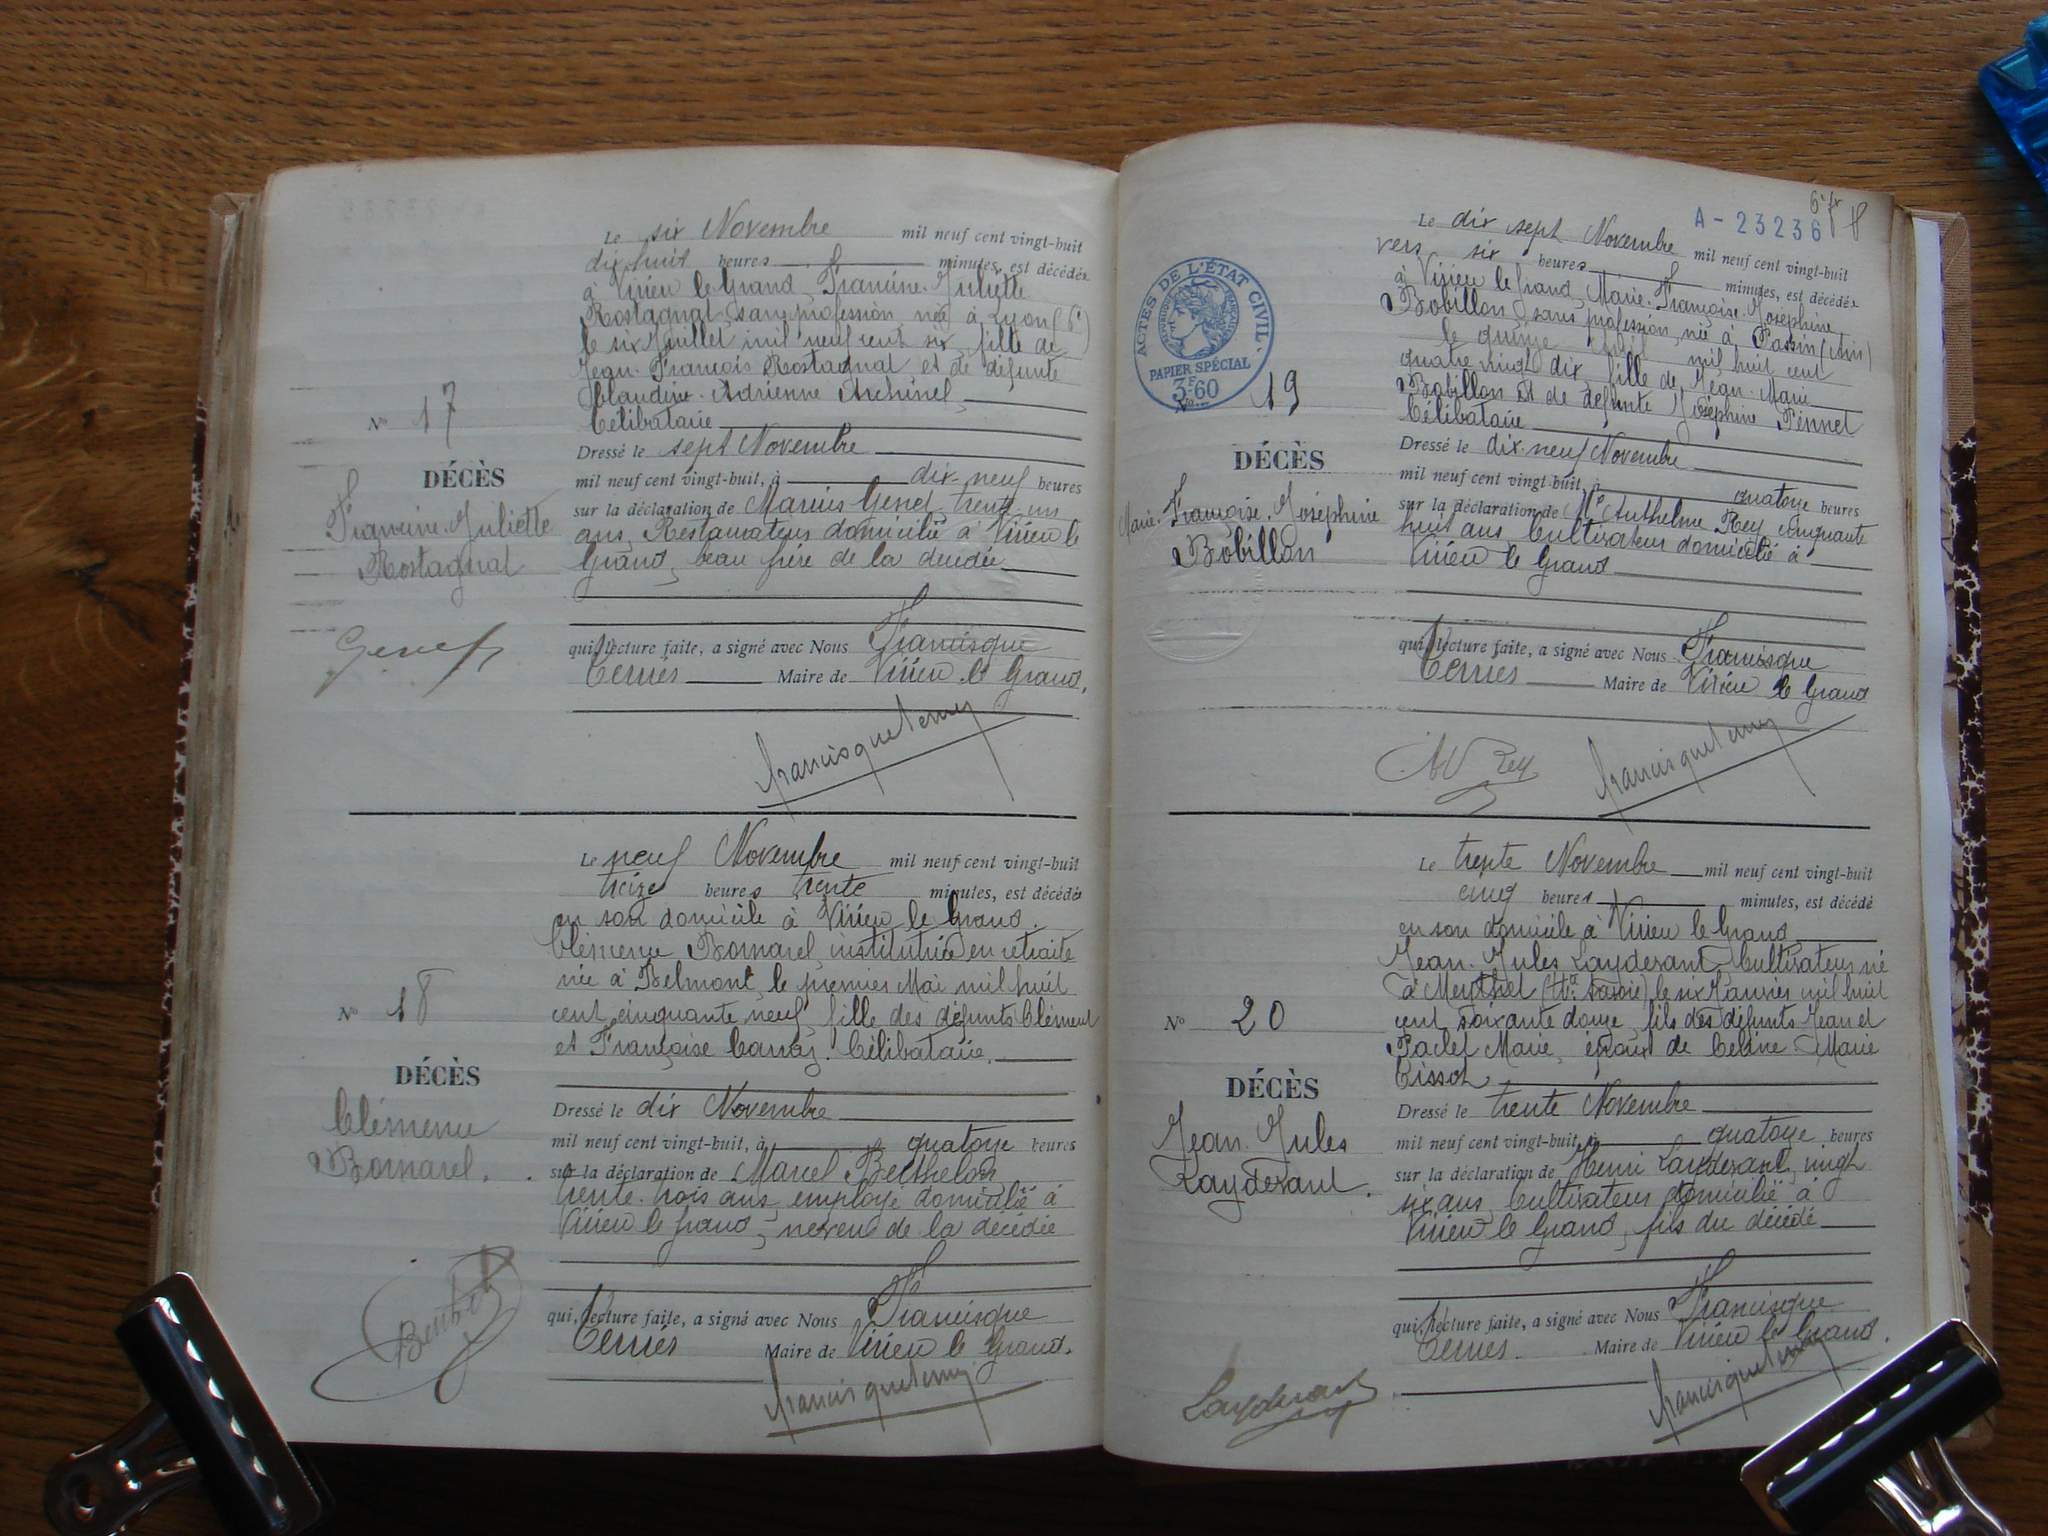 Le six Novembre mil neuf cent vingt-huit
dix huit heures minutes, est décédée
à Virieu le Grand, Francine Juliette
Rostagnat, sans profession, née à Lyon (6e)
le six Juillet mil neuf cent six, fille de
Jean François Rostagnat et de défunte
Claudine Adrienne Archinel,
Célibataire
N° 17
DÉCÈS
Francine Juliette
Rostagnat
Dressé le sept Novembre
mil neuf cent vingt-huit, à dix-neuf heures
sur la déclaration de Marius Genet, trente un
ans, Restaurateur domicilié à Virieu le
Grand, beau frère de la décédée
qui, lecture faite, a signé avec Nous Francisque
Terrier Maire de Virieu le Grand.
Genet
Le neuf Novembre mil neuf cent vingt-huit
treize heures trente minutes, est décédée
en son domicile à Virieu le Grand.
Clémence Bornarel, institutrice en retraite
née à Belmont, le premier Mai mil huit
cent cinquante neuf, fille des défunts Clément
et Françoise Carraz. Célibataire.
N° 18
DÉCÈS
Clémence
Bornarel.
Dressé le dix Novembre
mil neuf cent vingt-huit, à quatorze heures
sur la déclaration de Marcel Berthelon
trente trois ans, employé domicilié à
Virieu le Grand, neveu de la décédée
qui, lecture faite, a signé avec Nous Francisque
Terrier Maire de Virieu le Grand.
A-23236
Le dix sept Novembre mil neuf cent vingt-huit
vers six heures minutes, est décédée
à Virieu le Grand, Marie Françoise Joséphine
Bobillon, sans profession, née à Passin (Ain)
le quinze mil huit cent
quatre vingt dix, fille de Jean Marie
Bobillon et de défunte Joséphine Pennet
Célibataire
ACTES DE L'ÉTAT CIVIL
RÉPUBLIQUE FRANÇAISE
PAPIER SPÉCIAL
3F60
N° 19
DÉCÈS
Marie Françoise Joséphine
Bobillon
Dressé le dix-neuf Novembre
mil neuf cent vingt-huit, à quatorze heures
sur la déclaration de Anthelme Rey, cinquante
huit ans, Cultivateur domicilié à
Virieu le Grand
qui, lecture faite, a signé avec Nous Francisque
Terrier Maire de Virieu le Grand
Rey
Le trente Novembre mil neuf cent vingt-huit
cinq heures minutes, est décédé
en son domicile à Virieu le Grand
Jean Jules Laydevant, Cultivateur né
à Menthel (Hte Savoie) le six Janvier mil huit
cent soixante douze, fils des défunts Jean et
Paclet Marie, époux de Celine Marie
Cissot
N° 20
DÉCÈS
Jean Jules
Laydevant.
Dressé le trente Novembre
mil neuf cent vingt-huit, à quatorze heures
sur la déclaration de Henri Laydevant, vingt
six ans, Cultivateur domicilié à
Virieu le Grand, fils du décédé
qui, lecture faite, a signé avec Nous Francisque
Terrier Maire de Virieu le Grand.
Laydevant